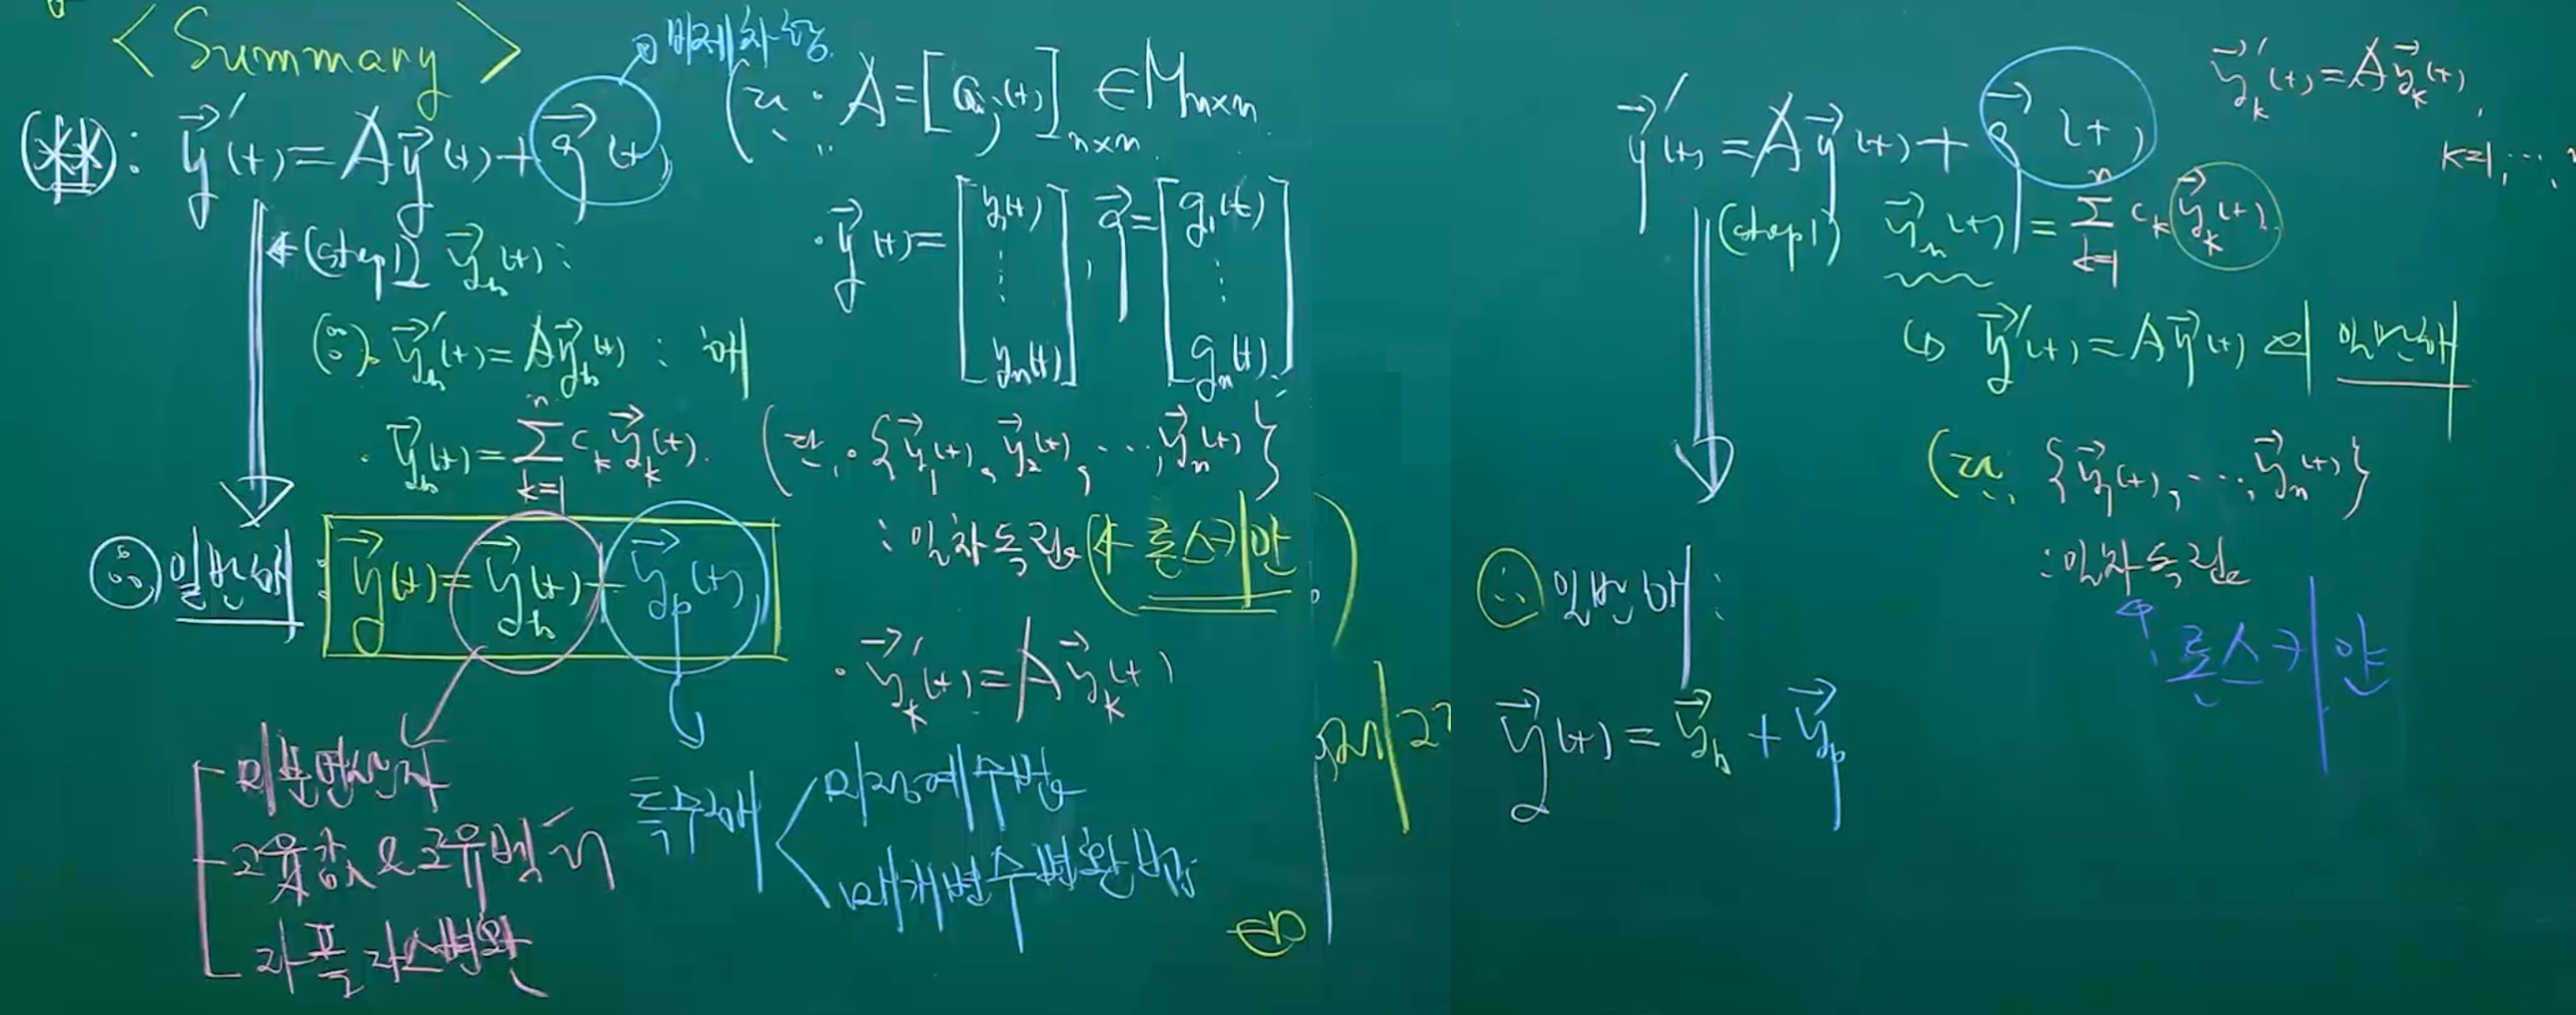 < Summary >
비제차항
(**): y⃗′(t) = A y⃗(t) + g⃗(t)
(단, · A = [aᵢⱼ(t)]ₙₓₙ ∈ Mₙₓₙ
· y⃗(t) = [y₁(t) ⋮ yₙ(t)], g⃗ = [g₁(t) ⋮ gₙ(t)].
(step1) y⃗ₕ(t) :
y⃗ₕ′(t) = A y⃗ₕ(t) : 해
· y⃗ₕ(t) = Σₖ₌₁ⁿ cₖ y⃗ₖ(t).
(단, · {y⃗₁(t), y⃗₂(t), ⋯, y⃗ₙ(t)}
: 일차독립 (← 론스키안)
· y⃗ₖ′(t) = A y⃗ₖ(t)
∴ 일반해 : y⃗(t) = y⃗ₕ(t) + y⃗ₚ(t)
미분연산자
고유값 & 고유벡터
라플라스변환
특수해
미정계수법
매개변수변환법
y⃗′(t) = A y⃗(t) + g⃗(t)
y⃗ₖ′(t) = A y⃗ₖ(t),
k=1, ⋯,
(step1) y⃗ₕ(t) = Σₖ₌₁ⁿ cₖ y⃗ₖ(t).
↳ y⃗′(t) = A y⃗(t) 의 일반해
(단, {y⃗₁(t), ⋯, y⃗ₙ(t)}
: 일차독립
론스키안
∴ 일반해 :
y⃗(t) = y⃗ₕ + y⃗ₚ